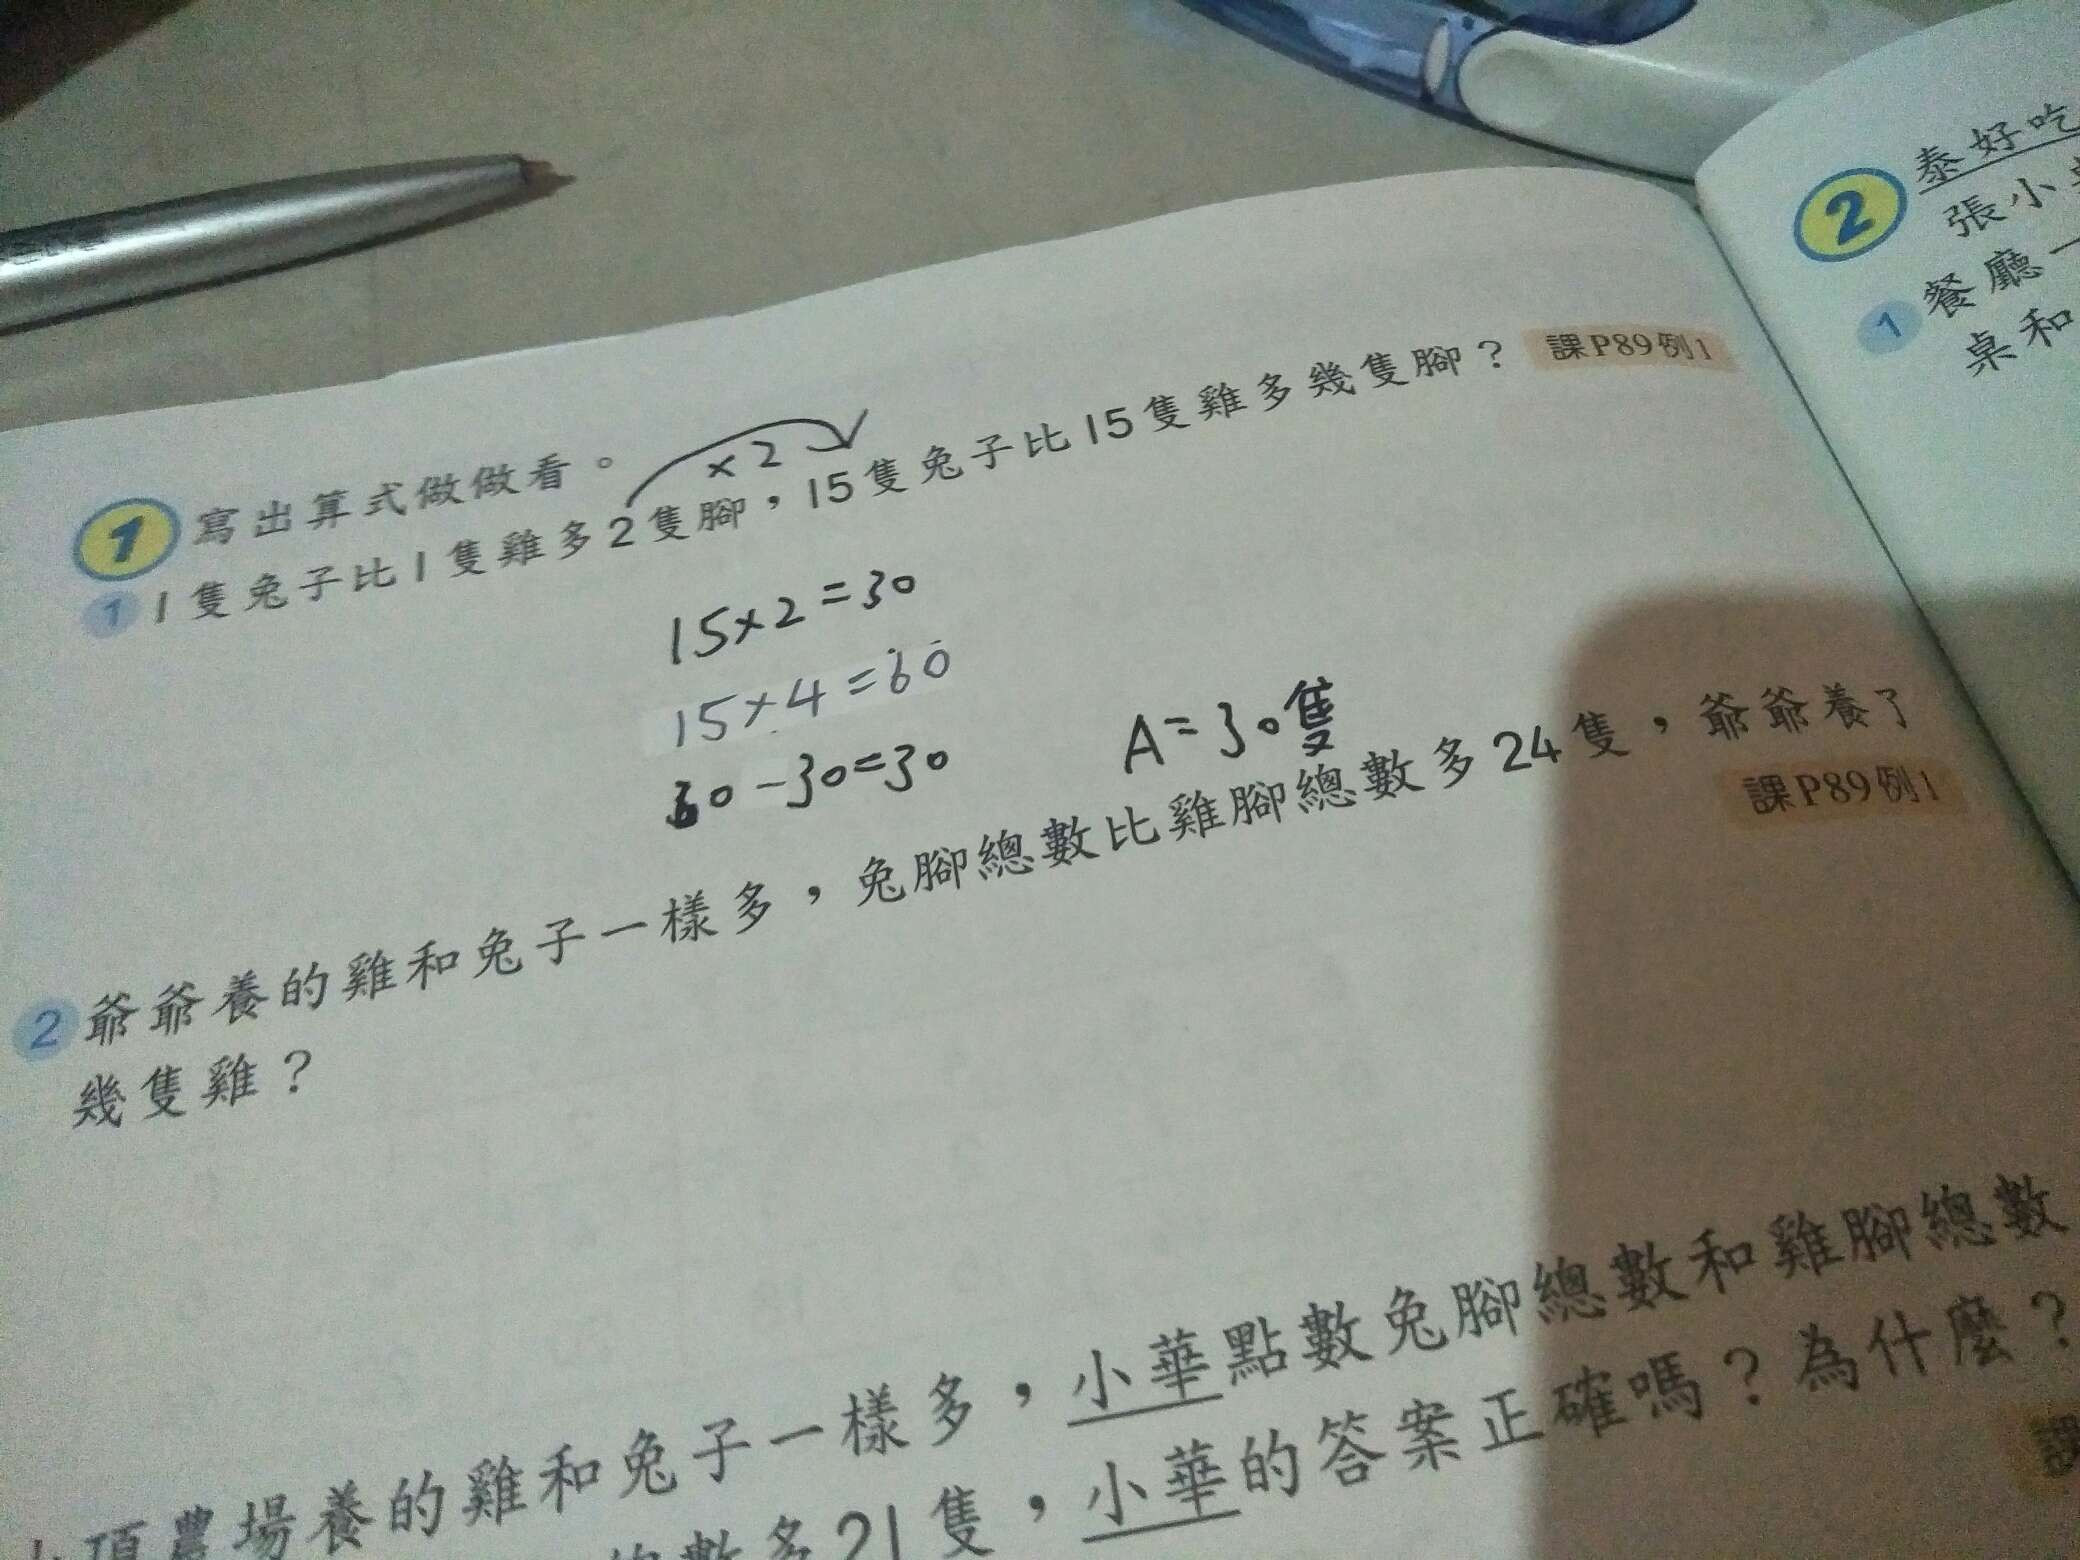 1 寫出算式做做看。
×2
1 1隻兔子比1隻雞多2隻腳，15隻兔子比15隻雞多幾隻腳？ 課P89例1
15×2=30
15×4=60
60-30=30 A=30隻
2 爺爺養的雞和兔子一樣多，兔腳總數比雞腳總數多24隻，爺爺養了
幾隻雞？ 課P89例1
頂農場養的雞和兔子一樣多，小華點數兔腳總數和雞腳總數
總數多21隻，小華的答案正確嗎？為什麼？
課
2 泰好吃
張小
1 餐廳一
桌和